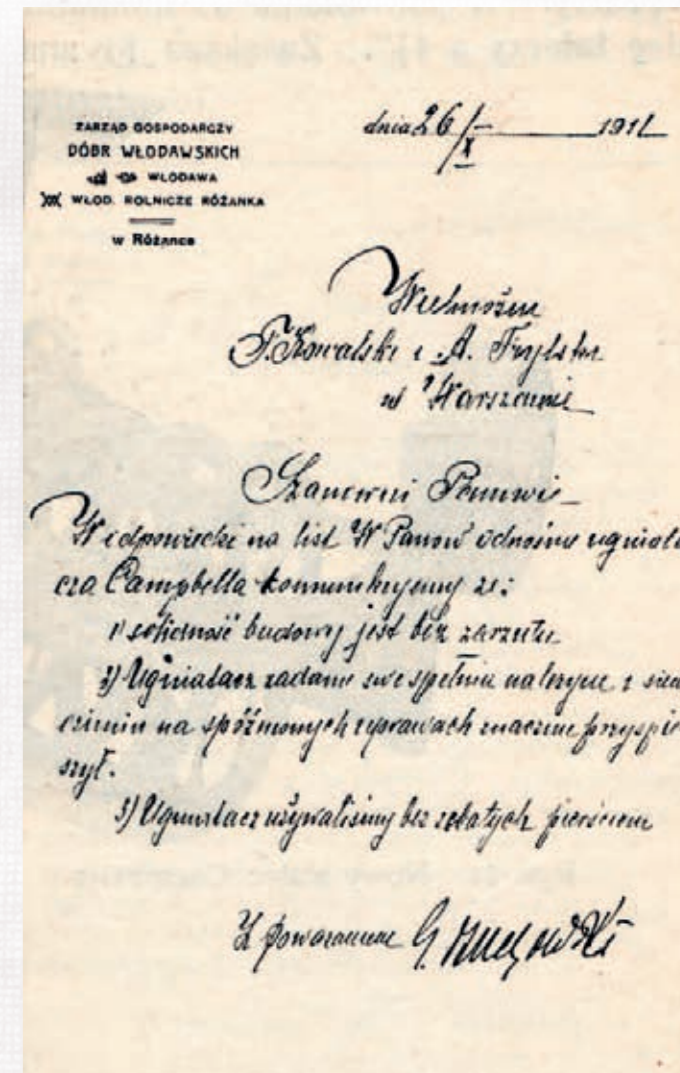 ZARZĄD GOSPODARCZY
DÓBR WŁODAWSKICH
WŁODAWA
WŁOD. ROLNICZE RÓŻANKA
w Różance
dnia 26/X 191
Wielmożni
T. Kowalski i A. Trylski
w Warszawie
Szanowni Panowie
W odpowiedzi na list W Panów odnośnie ugniata
cza Campbella komunikujemy że:
1) solidność budowy jest bez zarzutu
2) Ugniatacz zadanie swe spełnia należycie i siew
ozimin na spóźnionych uprawach znacznie przyspie
szył.
3) Ugniatacz używaliśmy bez zębatych pierścieni
Z poważaniem